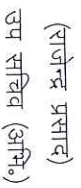 (राजेन्द्र प्रसाद)
उप सचिव (अभि.)